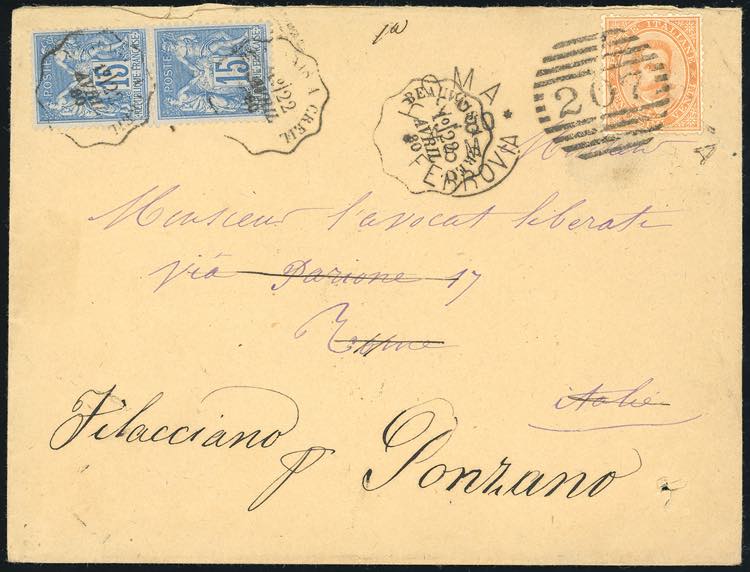 POSTE
15
REPUBLIQUE FRANÇAISE
POSTE
15
AVRIL
80
A CREIL
ROMA
FERROVIA
AVRIL
80
207
ITALIANE
Monsieur l'avocat Liberati
via Parione 17
Rome
Italie
Filacciano p Ponzano